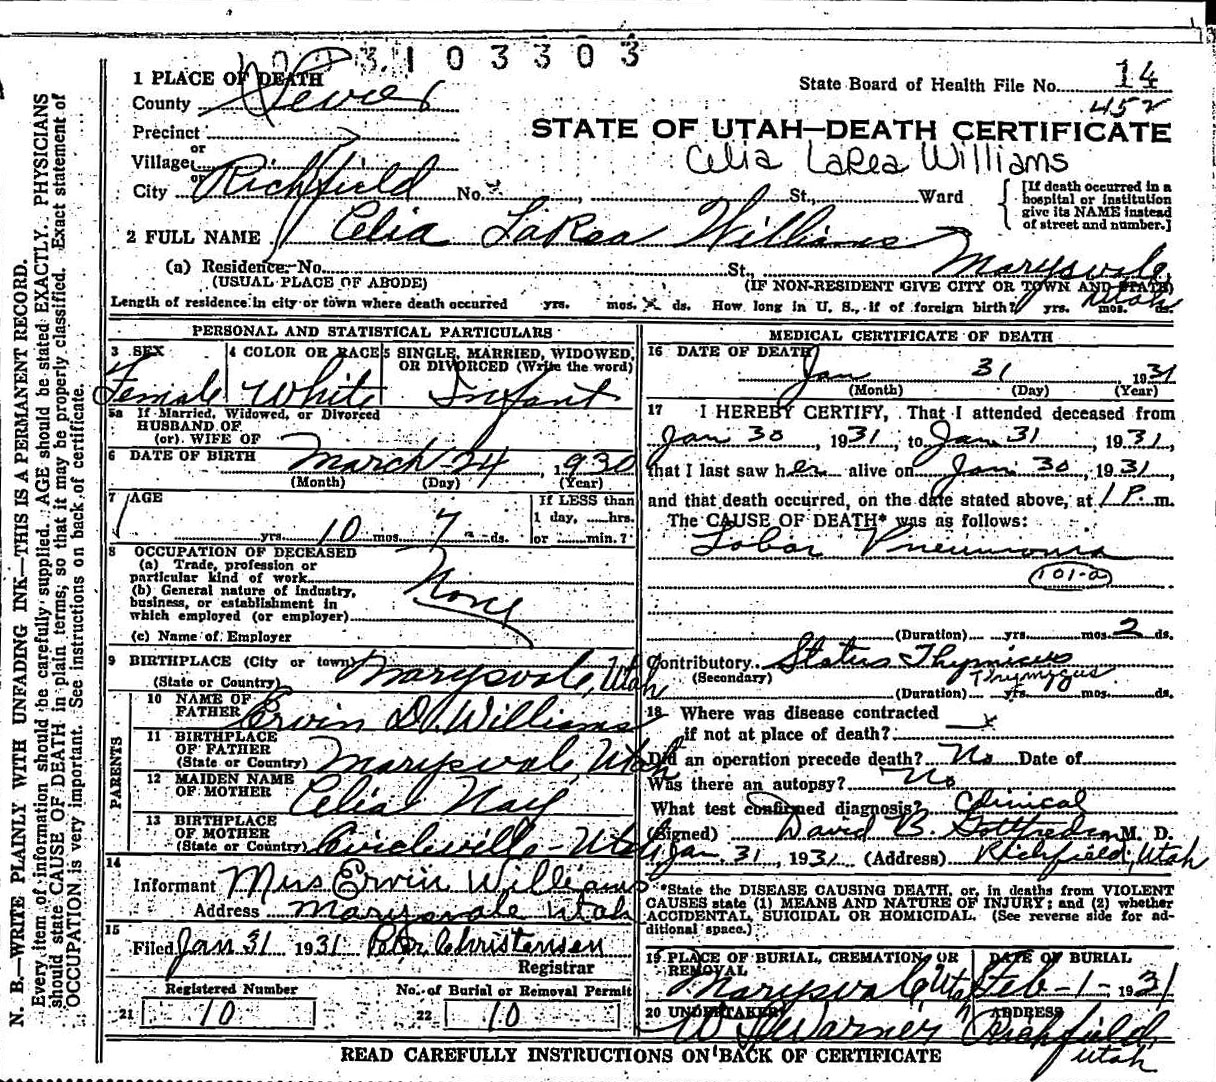 3103303
1 PLACE OF DEATH
State Board of Health File No. 14
County Sevier
452
Precinct
STATE OF UTAH—DEATH CERTIFICATE
or
Village
Celia LaRea Williams
or
City Richfield No. x , St., Ward
[If death occurred in a
hospital or institution
give its NAME instead
of street and number.]
2 FULL NAME Celia LaRea Williams
(a) Residence. No. St., Marysvale,
(USUAL PLACE OF ABODE) (IF NON-RESIDENT GIVE CITY OR TOWN AND STATE)
Utah
Length of residence in city or town where death occurred yrs. mos. x ds. How long in U. S., if of foreign birth? yrs. mos. ds.
PERSONAL AND STATISTICAL PARTICULARS
3 SEX 4 COLOR OR RACE 5 SINGLE, MARRIED, WIDOWED,
OR DIVORCED (Write the word)
Female White Infant
5a If Married, Widowed, or Divorced
HUSBAND OF
(or) WIFE OF
6 DATE OF BIRTH March 24, 1930
(Month) (Day) (Year)
7 AGE
If LESS than
1 day, ......hrs.
yrs. 10 mos. 7 ds. or ......min.?
8 OCCUPATION OF DECEASED
(a) Trade, profession or
particular kind of work
None
(b) General nature of industry,
business, or establishment in
which employed (or employer)
(c) Name of Employer
9 BIRTHPLACE (City or town) Marysvale, Utah
(State or Country)
PARENTS
10 NAME OF
FATHER Ervin D. Williams
11 BIRTHPLACE
OF FATHER
(State or Country) Marysvale, Utah
12 MAIDEN NAME
OF MOTHER Celia Nay
13 BIRTHPLACE
OF MOTHER
(State or Country) Circleville - Utah
14
Informant Mrs Ervin Williams
Address Marysvale Utah
15
Filed Jan 31 1931 Peter Christensen
Registrar
Registered Number No. of Burial or Removal Permit
21 10 22 10
MEDICAL CERTIFICATE OF DEATH
16 DATE OF DEATH
Jan 31 1931
(Month) (Day) (Year)
17 I HEREBY CERTIFY, That I attended deceased from
Jan 30, 1931, to Jan 31, 1931,
that I last saw her alive on Jan 30, 1931,
and that death occurred, on the date stated above, at 1 P. m.
The CAUSE OF DEATH* was as follows:
Lobar Pneumonia
101-a
(Duration) yrs. mos. 2 ds.
Contributory Status Thymicus
(Secondary)
(Duration) yrs. mos. ds.
18 Where was disease contracted
if not at place of death? x
Did an operation precede death? No Date of
Was there an autopsy? No
What test confirmed diagnosis? Clinical
(Signed) David B. Gottfredson M. D.
Jan. 31, 1931 (Address) Richfield, Utah
*State the DISEASE CAUSING DEATH, or, in deaths from VIOLENT
CAUSES state (1) MEANS AND NATURE OF INJURY; and (2) whether
ACCIDENTAL, SUICIDAL OR HOMICIDAL. (See reverse side for ad-
ditional space.)
19 PLACE OF BURIAL, CREMATION, OR
REMOVAL
DATE OF BURIAL
Marysvale, Utah Feb - 1 - 1931
20 UNDERTAKER ADDRESS
Warner Richfield,
Utah
READ CAREFULLY INSTRUCTIONS ON BACK OF CERTIFICATE
N. B.—WRITE PLAINLY WITH UNFADING INK—THIS IS A PERMANENT RECORD.
Every item of information should be carefully supplied. AGE should be stated EXACTLY. PHYSICIANS
should state CAUSE OF DEATH in plain terms, so that it may be properly classified. Exact statement of
OCCUPATION is very important. See instructions on back of certificate.